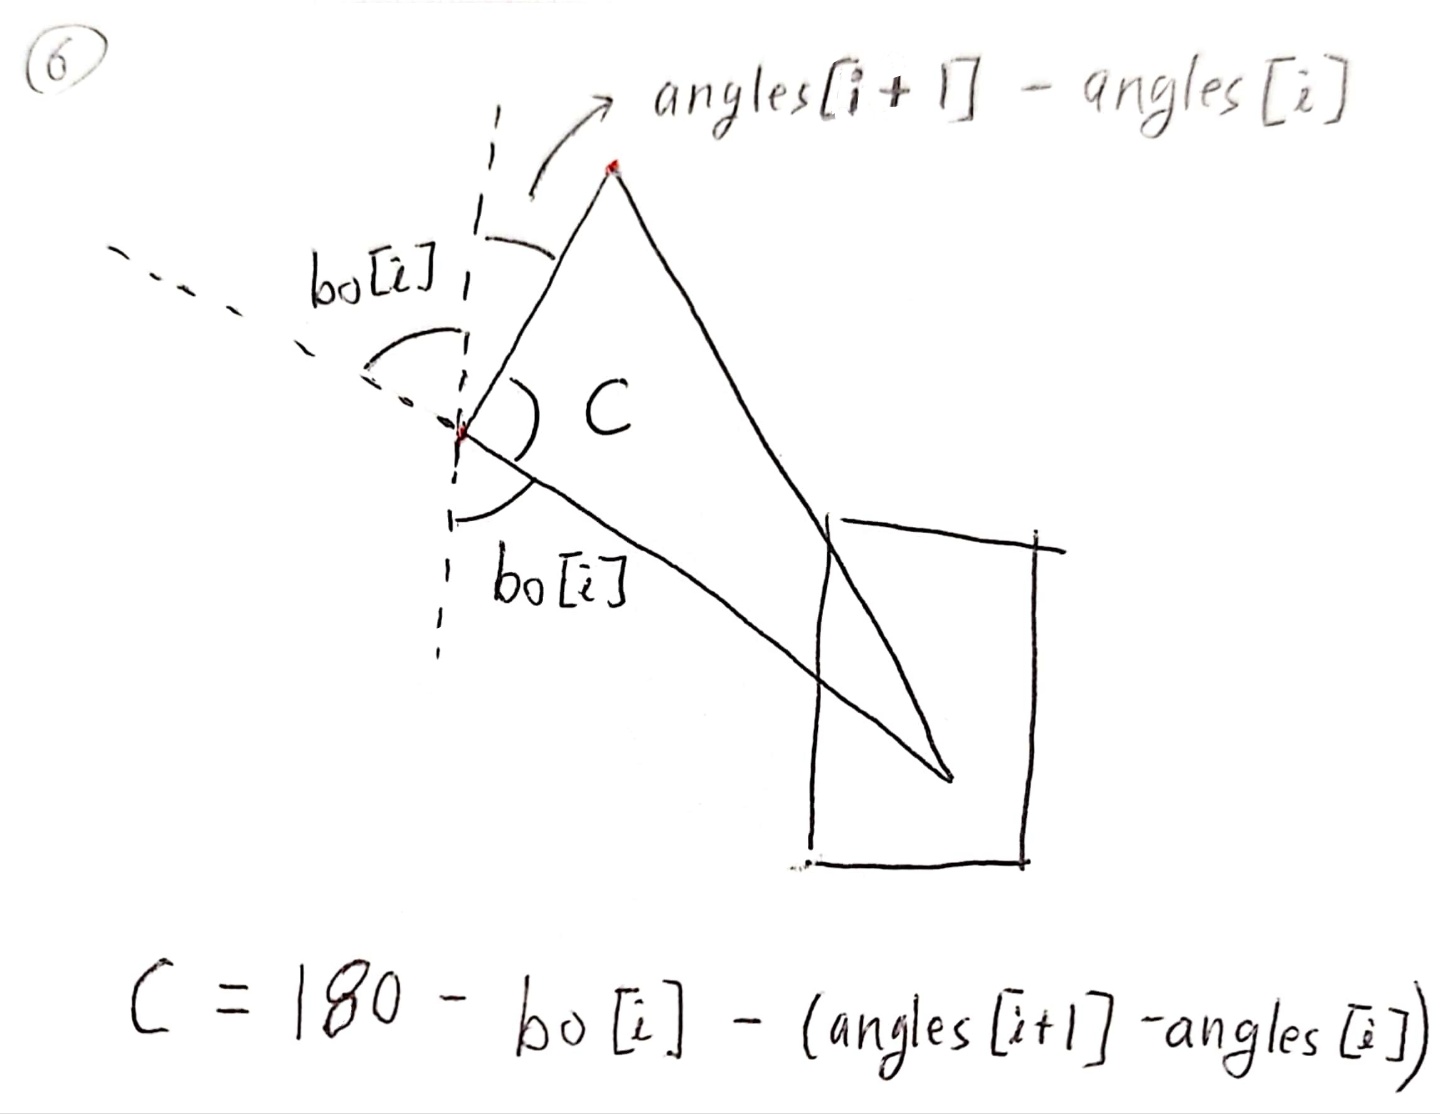 6
angles[i+1] - angles[i]
bo[i]
C
bo[i]
C = 180 - bo[i] - (angles[i+1] -angles[i])